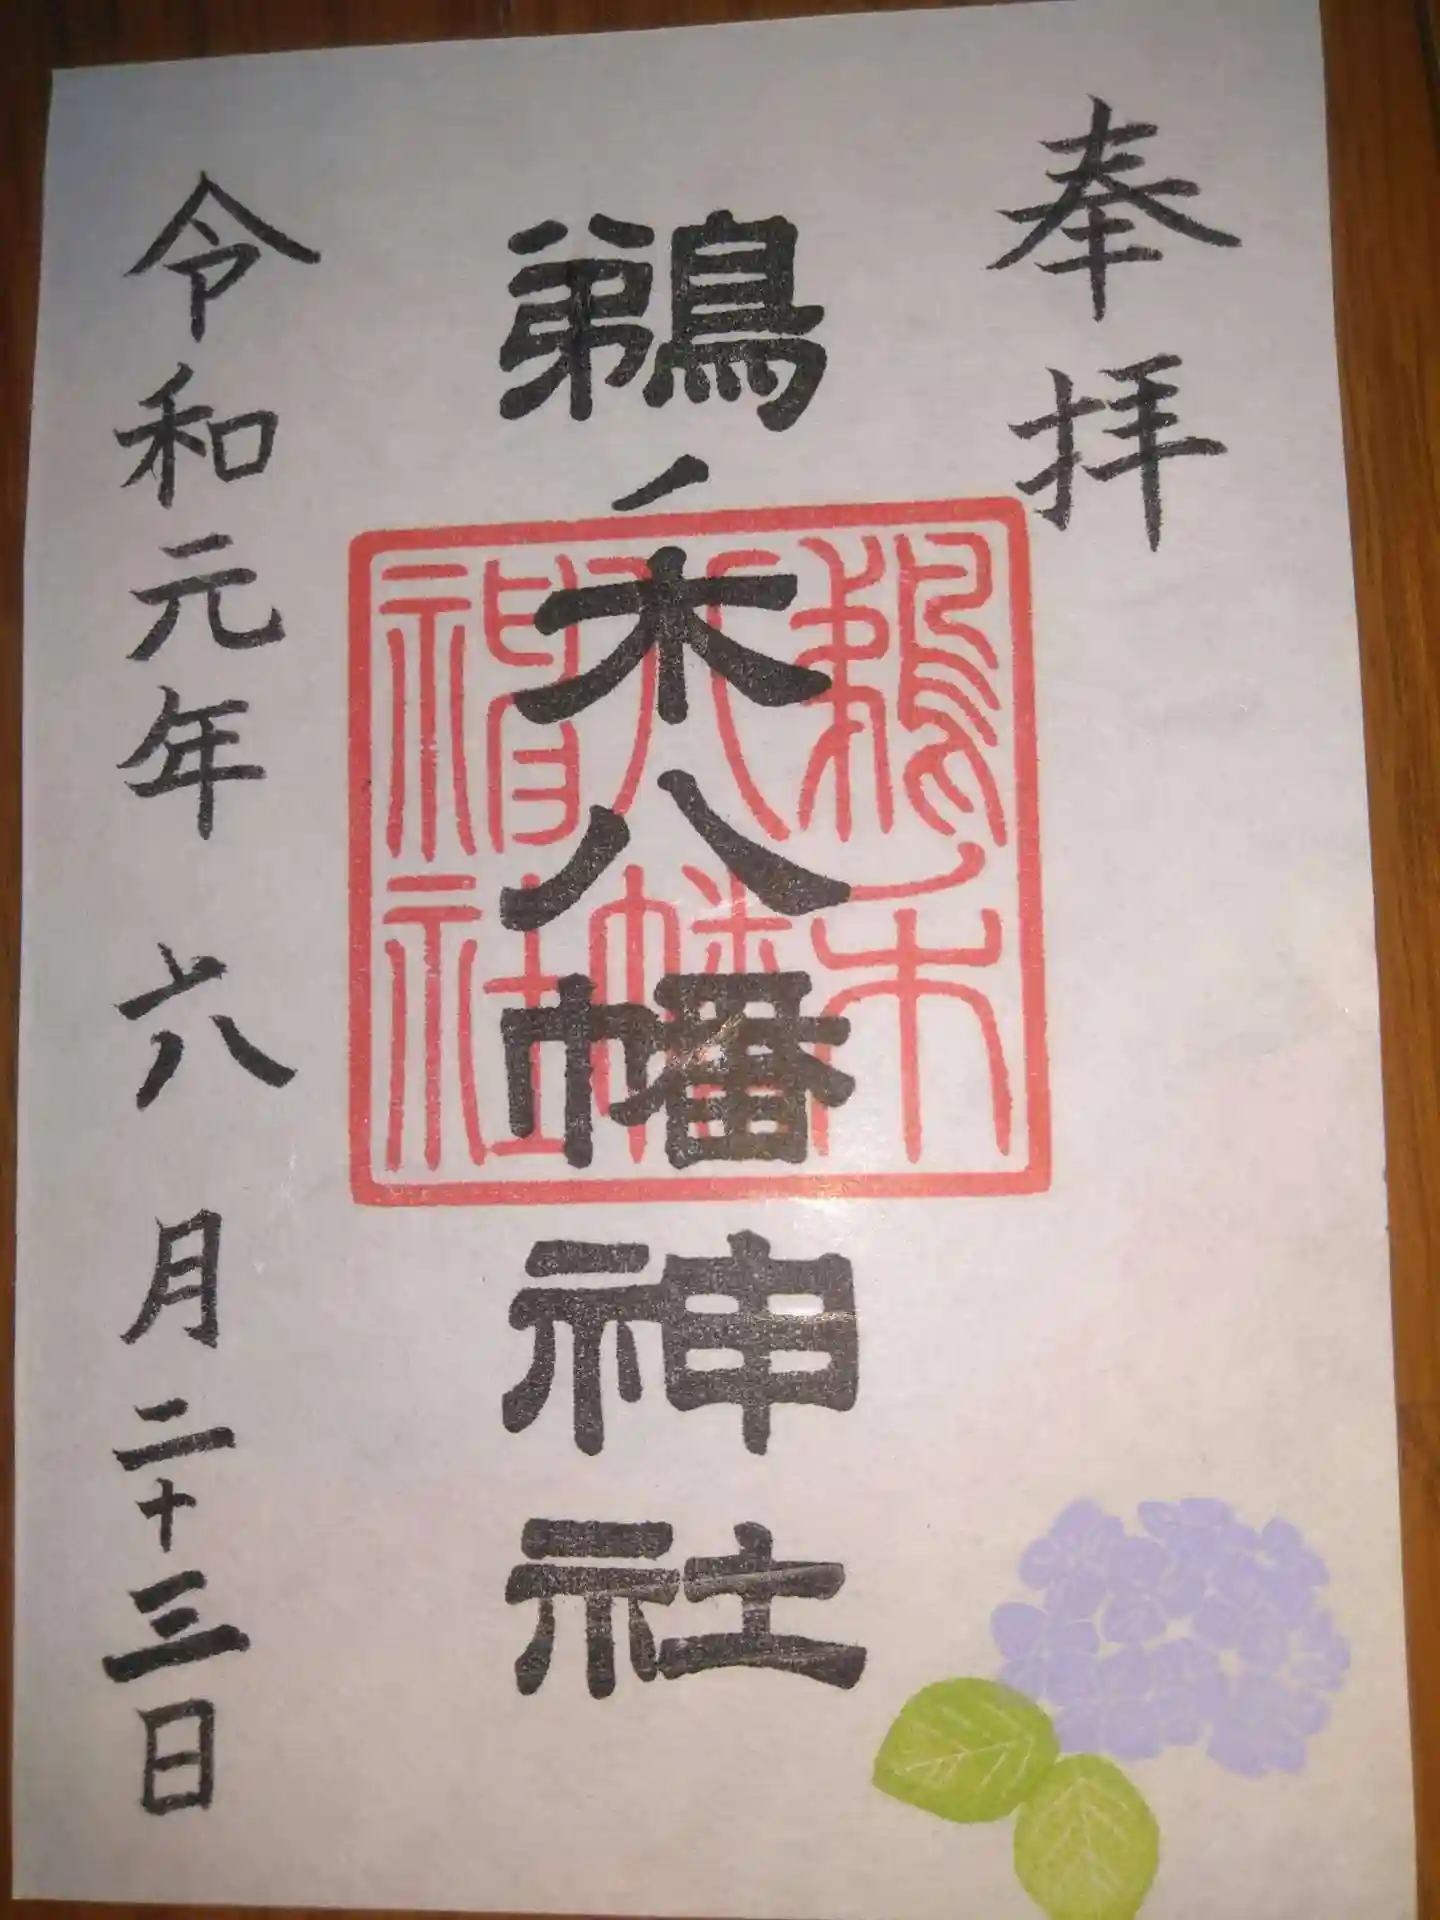 奉拝
鵜ノ木八幡神社
鵜ノ木
八幡
神社
令和元年六月二十三日